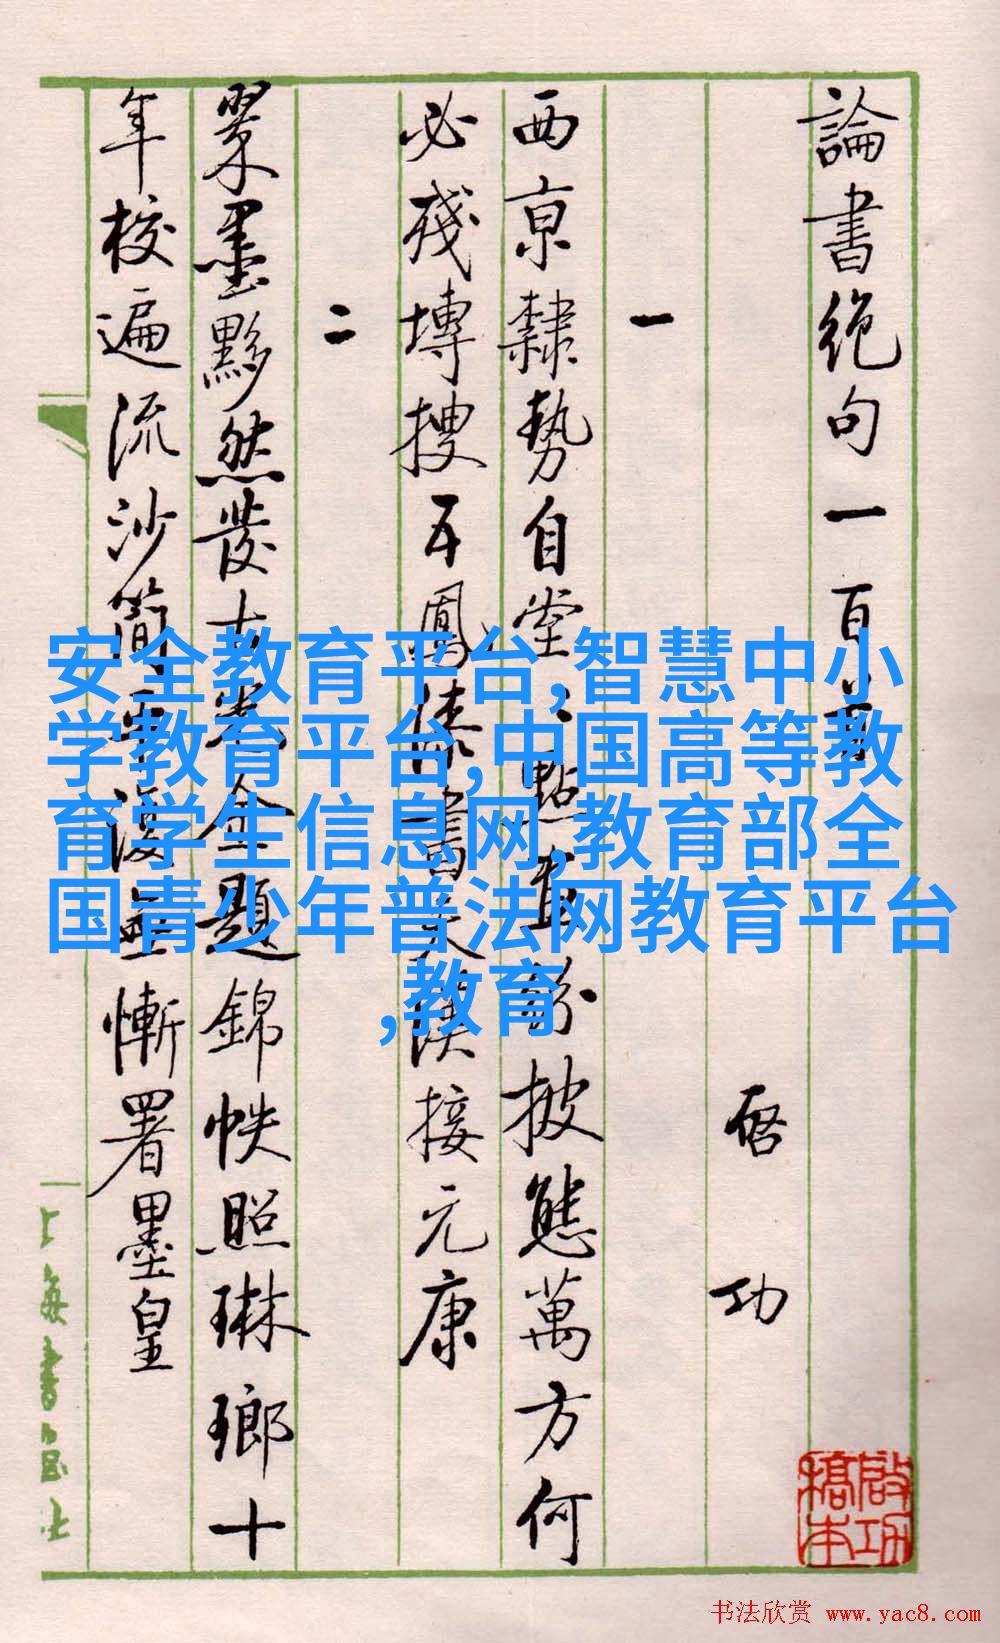 論書絕句一百首
啓功
一
西京隸勢自堂〻點畫紛披態萬方何
必殘塼搜五鳳漆書天漢接元康
二
翠墨黟然發古光金題錦帙照琳瑯十
年校遍流沙簡平復無慚署墨皇
上海書画社
啟功
稿本
安全教育平台,智慧中小
学教育平台,中国高等教
育学生信息网,教育部全
国青少年普法网教育平台
,教育
书法欣赏 www.yac8.com